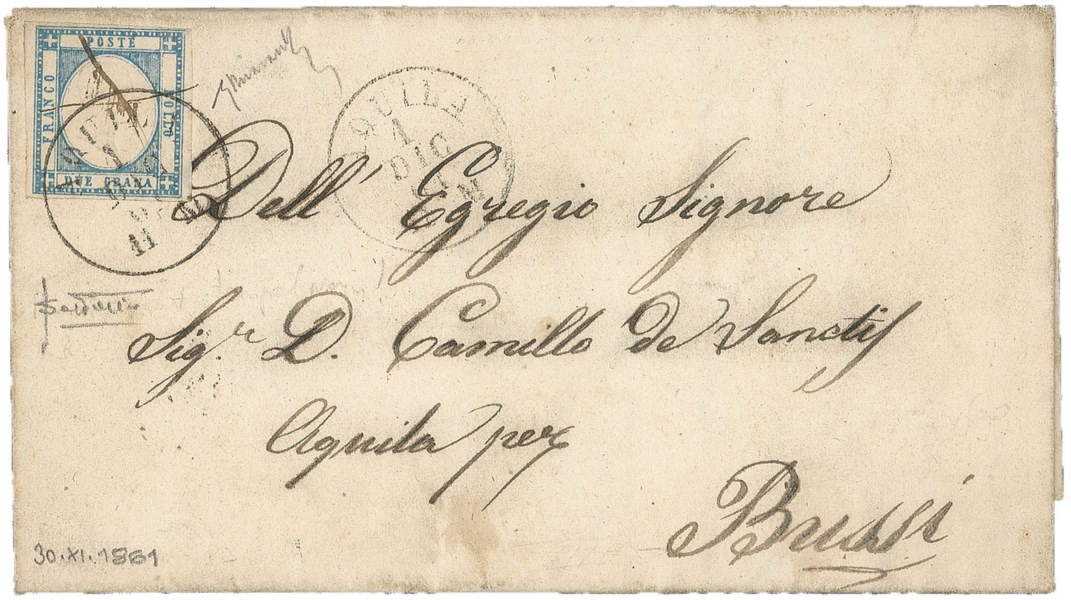 POSTE
FRANCO
BOLLO
DUE GRANA
AQUILA
1
DIC
Dell' Egregio Signore
Sig.r D. Camillo de Sanctis
Aquila per
Bussi
30·XI·1861